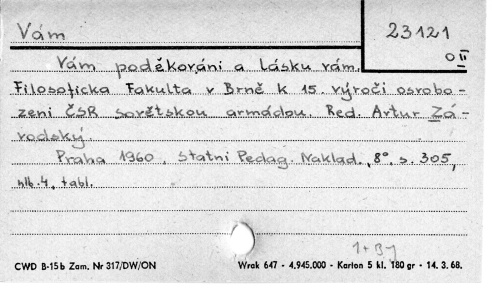 Vám
23121
O II
Vám poděkováni a lásku vám.
Filosofická Fakulta v Brně k 15. výroči osvobo-
zeni ČSR Sovětskou armádou. Red. Artur Zá-
vodský.
Praha 1960, Statni Pedag. Naklad., 8°, s. 305,
tabl.
1+By
CWD B-15b Zam. Nr 317/DW/ON
Wrak 647 - 4,945.000 - Karton 5 kl. 180 gr - 14. 3. 68.